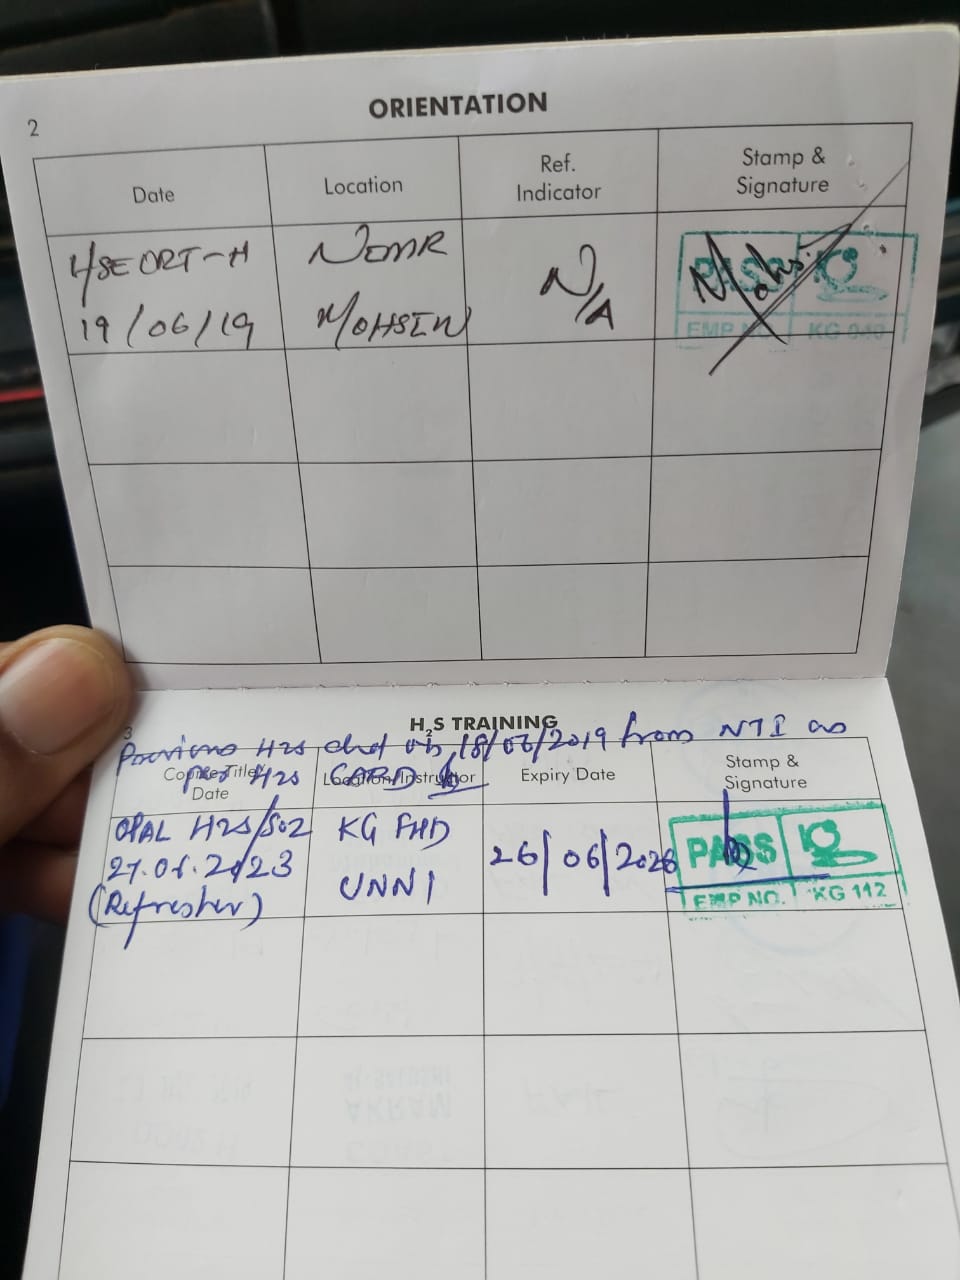 2
ORIENTATION
Date
Location
Ref.
Indicator
Stamp &
Signature
HSE ORT-H
19/06/19
NIMR
MOHSIN
N/A
PASS
EMP NO. KG 040
3
H₂S TRAINING
Previous H2S chd on 18/06/2019 from NTI as
per H2S CARD
Course Title/
Date
Location/Instructor
Expiry Date
Stamp &
Signature
OPAL H2S/SO2
27.06.2023
(Refresher)
KG FHD
UNNI
26/06/2026
PASS
EMP NO. KG 112